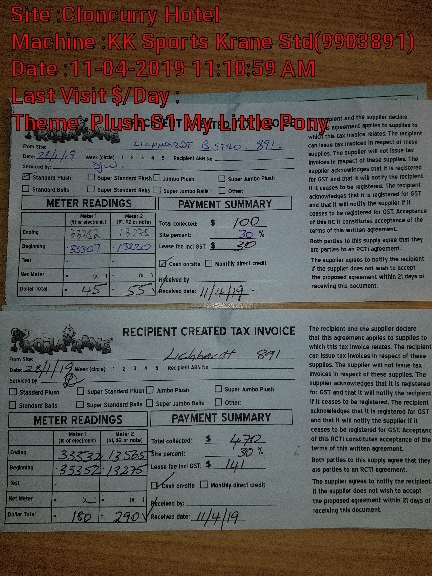 Site :Cloncurry Hotel
Machine :KK Sports Krane Std(9903891)
Date :11-04-2019 11:10:59 AM
Last Visit $/Day :
Theme :Plush S1 My Little Pony
From Site: Lichhardt Bistro 891
Date: Week (circle) 1 2 3 4 5 Recipient ABN No
Serviced by
Standard Plush Super Standard Plush Jumbo Plush Super Jumbo Plush
Standard Balls Super Standard Balls Super Jumbo Balls Other:
METER READINGS PAYMENT SUMMARY
Meter 1 Meter 2
(# or electronic) ($1, $2 or note)
Total collected: $ 100
Ending 33352 13275
Site percent: 30 %
Beginning 33307 13220
Lease fee incl GST $ 30
Test
Cash on-site Monthly direct credit
Net Meter
Received by
Dollar Total 45 55 Received date: 11/4/19
The recipient and the supplier declare
that this agreement applies to supplies to
which this tax invoice relates. The recipient
can issue tax invoices in respect of these
supplies. The supplier will not issue tax
invoices in respect of these supplies. The
supplier acknowledges that it is registered
for GST and that it will notify the recipient
if it ceases to be registered. The recipient
acknowledges that it is registered for GST
and that it will notify the supplier if it
ceases to be registered for GST. Acceptance
of this RCTI constitutes acceptance of the
terms of this written agreement.
Both parties to this supply agree that they
are parties to an RCTI agreement.
The supplier agrees to notify the recipient
if the supplier does not wish to accept
the proposed agreement within 21 days of
receiving this document.
RECIPIENT CREATED TAX INVOICE
From Site: Lichhardt 891
Date: Week (circle) 1 2 3 4 5 Recipient ABN No
Serviced by
Standard Plush Super Standard Plush Jumbo Plush Super Jumbo Plush
Standard Balls Super Standard Balls Super Jumbo Balls Other:
METER READINGS PAYMENT SUMMARY
Meter 1 Meter 2
(# or electronic) ($1, $2 or note)
Total collected: $ 470
Ending 33532 13565
Site percent: 30 %
Beginning 33352 13275
Lease fee incl GST: $ 141
Test
Cash on-site Monthly direct credit
Net Meter
Received by:
Dollar Total 180 290 Received date: 11/4/19
The recipient and the supplier declare
that this agreement applies to supplies to
which this tax invoice relates. The recipient
can issue tax invoices in respect of these
supplies. The supplier will not issue tax
invoices in respect of these supplies. The
supplier acknowledges that it is registered
for GST and that it will notify the recipient
if it ceases to be registered. The recipient
acknowledges that it is registered for GST
and that it will notify the supplier if it
ceases to be registered for GST. Acceptance
of this RCTI constitutes acceptance of the
terms of this written agreement.
Both parties to this supply agree that they
are parties to an RCTI agreement.
The supplier agrees to notify the recipient
if the supplier does not wish to accept
the proposed agreement within 21 days of
receiving this document.